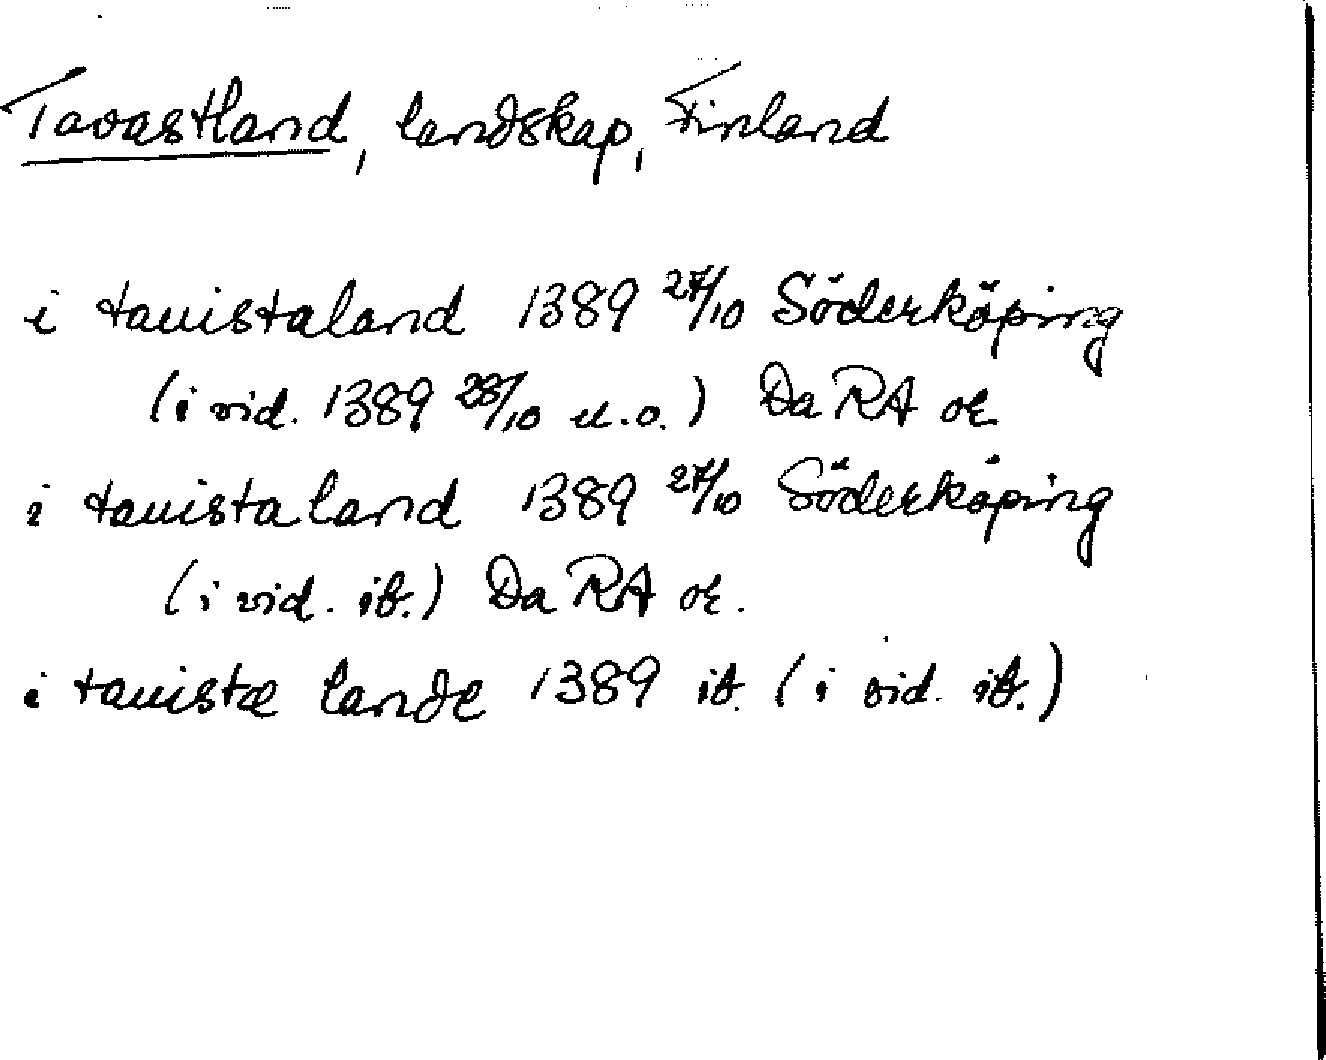 Tavastland, landskap, Finland
i tauistaland 1389 27/10 Söderköping
(i vid. 1389 28/10 u.o.) Da RA or.
i tauista land 1389 27/10 Söderköping
(i vid. ib.) Da RA or.
i tauistæ lande 1389 ib. (i vid. ib.)